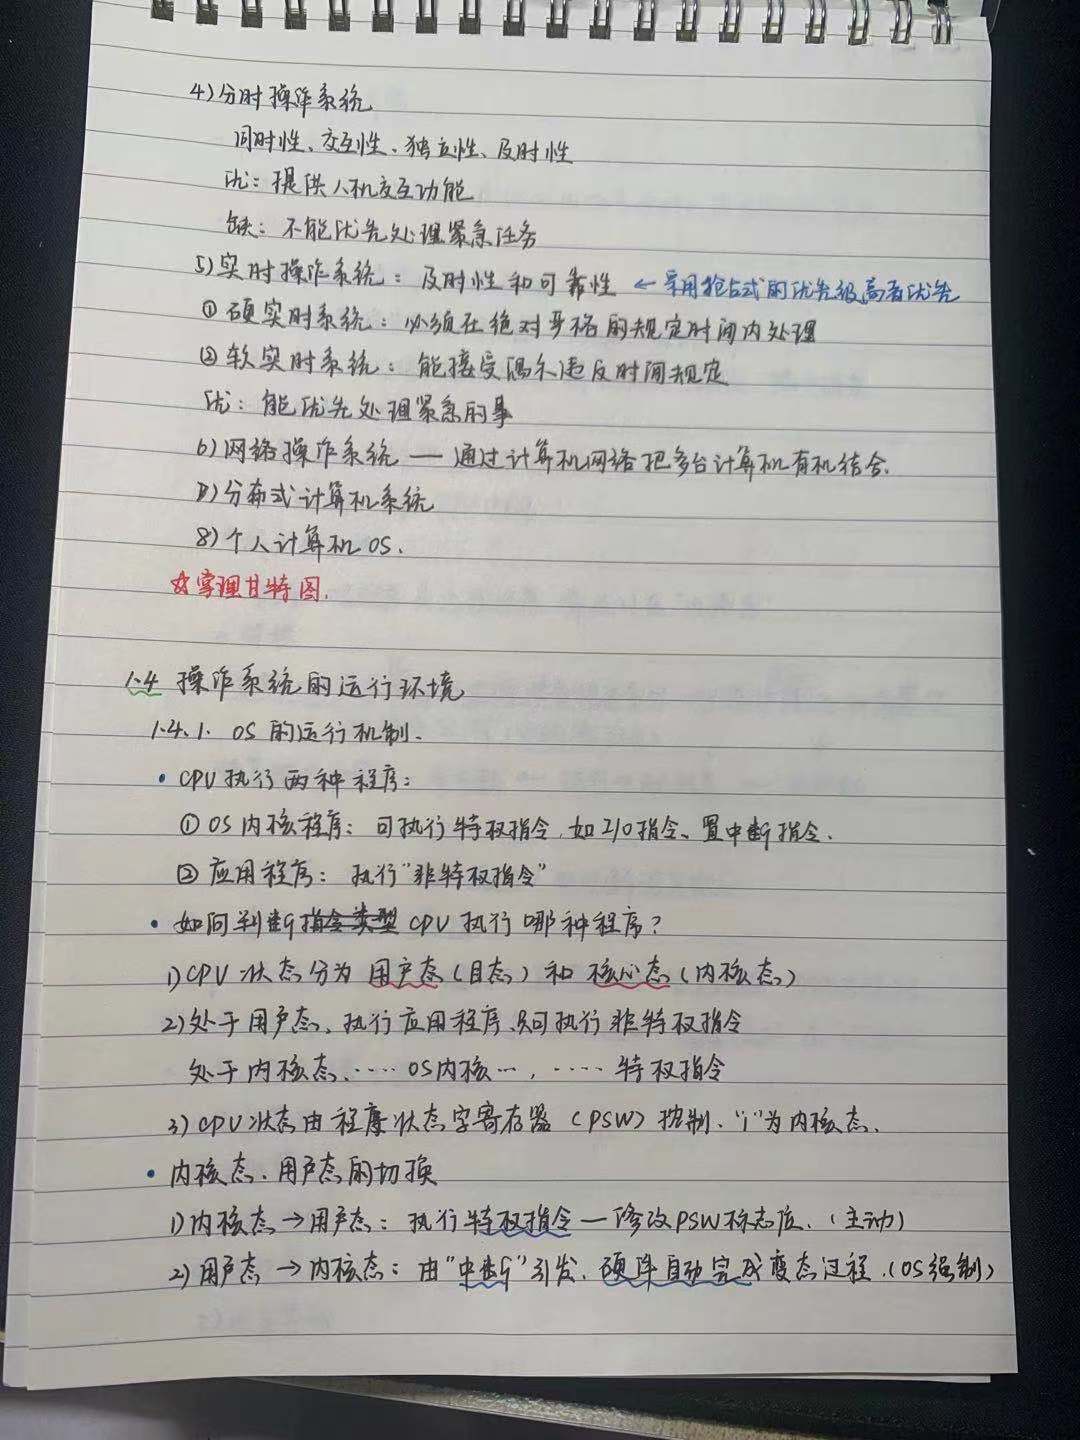 4)分时操作系统
同时性、交互性、独立性、及时性
优：提供人机交互功能
缺：不能优先处理紧急任务
5)实时操作系统：及时性和可靠性 ←采用抢占式的优先级高者优先
①硬实时系统：必须在绝对严格的规定时间内处理
②软实时系统：能接受偶尔违反时间规定
优：能优先处理紧急的事
6)网络操作系统——通过计算机网络把多台计算机有机结合.
7)分布式计算机系统
8)个人计算机OS.
☆掌握甘特图.
1.4 操作系统的运行环境
1.4.1. OS的运行机制.
·CPU执行两种程序：
①OS内核程序：可执行特权指令,如I/O指令、置中断指令.
②应用程序：执行"非特权指令"
·如何判断指令类型CPU执行哪种程序？
1)CPU状态分为用户态(目态)和核心态(内核态)
2)处于用户态,执行应用程序,只可执行非特权指令
处于内核态,……OS内核…,……特权指令
3)CPU状态由程序状态字寄存器(PSW)控制."1"为内核态.
·内核态、用户态的切换
1)内核态→用户态：执行特权指令—修改PSW标志位.(主动)
2)用户态→内核态：由"中断"引发,硬件自动完成变态过程.(OS强制)